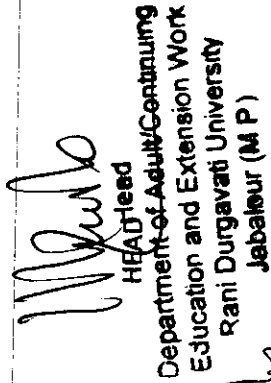 HEAD Head
Department of Adult/Continuing
Education and Extension Work
Rani Durgavati University
Jabalpur (M P)